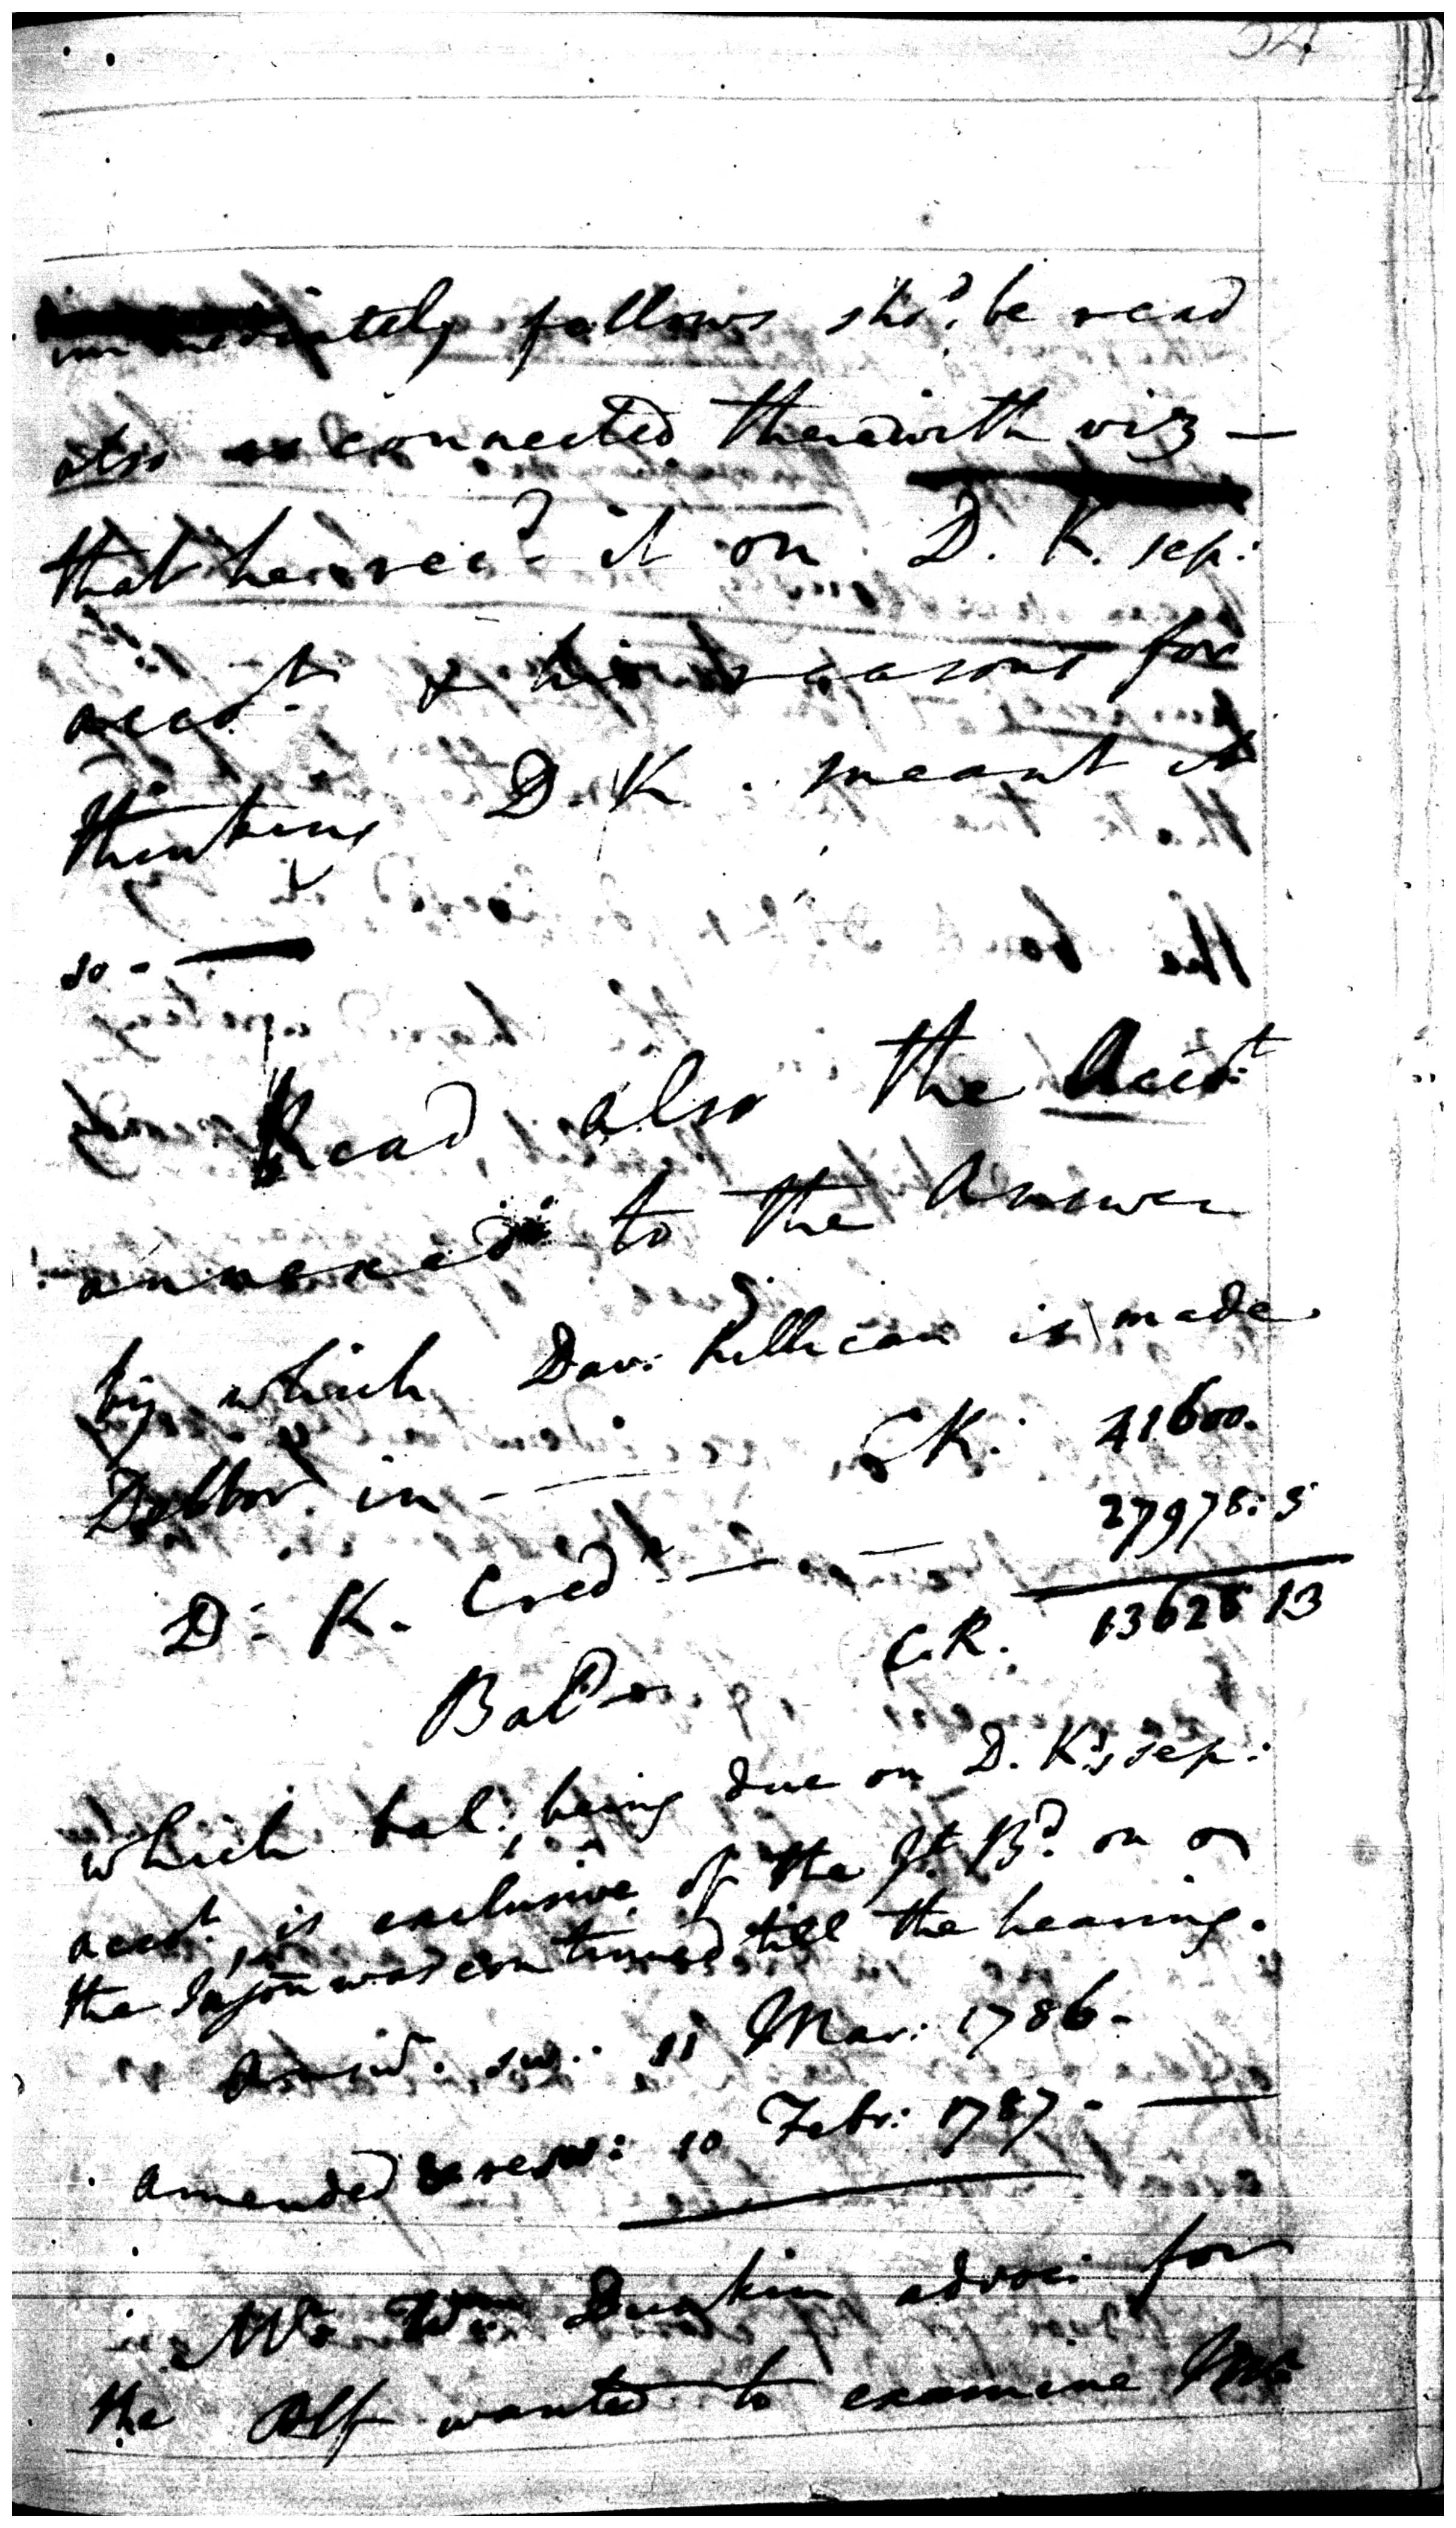 54
immediately follows shd. be read
also as connected therewith viz —
that he recd. it on D. K. sep:
accot. & his reasons for
thinking D. K. meant it
so - —
Read also the Accot.
annexed to the Answer
by which Dav: Killican is made
Debtor in - — CR. 41600.
D: K. Credr. — — 27978: 3
Bal: C.R. 13628 13
which bal:, being due on D. K's sep:
accot., is exclusive of the Jt. Bd. on
the Injon was continued till the hearing.
Answd. sw.. 11 Mar: 1786 -
amended & resw: 10 Febr: 1787 - —
Mr. Wm Dunkin advoc: for
the Plf wanted to examine Mr